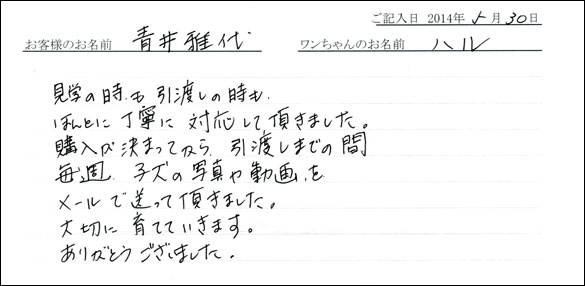 ご記入日 2014年 5月 30日
お客様のお名前 青井雅代 ワンちゃんのお名前 ハル
見学の時も 引渡しの時も
ほんとに丁寧に 対応して頂きました。
購入が決まってから、引渡しまでの間
毎週、子犬の写真や動画を
メールで送って頂きました。
大切に育てていきます。
ありがとうございました。